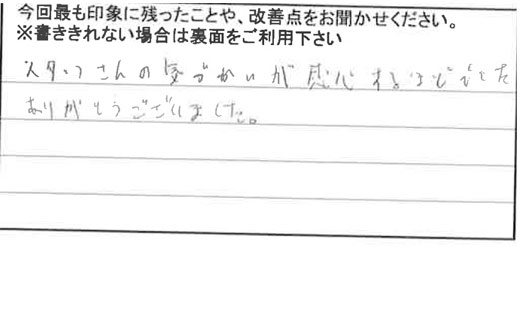 今回最も印象に残ったことや、改善点をお聞かせください。
※書ききれない場合は裏面をご利用下さい
スタッフさんの気づかいが感心するほどでした
ありがとうございました。